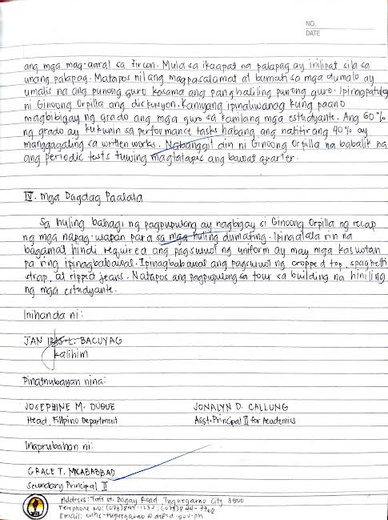 NO.
DATE
ang mga mag-aaral sa tircon. Mula sa ikaapat na palapag ay inilipat sila sa
unang palapag. Matapos nilang magpasalamat at bumati sa mga dumalo ay
umalis na ang punong guro kasama ang pangbaliling punong guro. Ipinagpatuloy
ni Ginoong Orpilla ang diskusyon. Kanyang ipinaliwanag kung paano
magbibigay ng grado ang mga guro sa kanilang mga estudyante. Ang 60%
ng grado ay kukunin sa performance tasks habang ang natitirang 40% ay
manggagaling sa written works. Nabanggit din ni Ginoong Orpilla na babalik na
ang periodic tests tuwing magtatapos ang bawat quarter.
IV. Mga Dagdag Paalala
Sa huling bahagi ng pagpupulong ay nagbigay si Ginoong Orpilla ng recap
ng mga napag-usapan para sa mga huling dumating. Ipinaalala rin na
bagamat hindi required ang pagsusuot ng uniform ay may mga kasuotan
pa ring ipinagbabawal. Ipinagbabawal ang pagsusuot ng cropped top, spaghetti
strap, at ripped jeans. Natapos ang pagpupulong sa tour sa building na hiniling
ng mga estudyante.
Inihanda ni:
JAN BACUYAG
Kalihim
Pinatnubayan nina:
JOSEPHINE M. DUQUE JONALYN D. CALLUNG
Head, Filipino Department Asst. Principal II for Academics
Inaprubahan ni:
GRACE T. MACABABBAD
Secondary Principal II
Address: Bagay Road Tuguegarao City 3500
Telephone no:
Email: